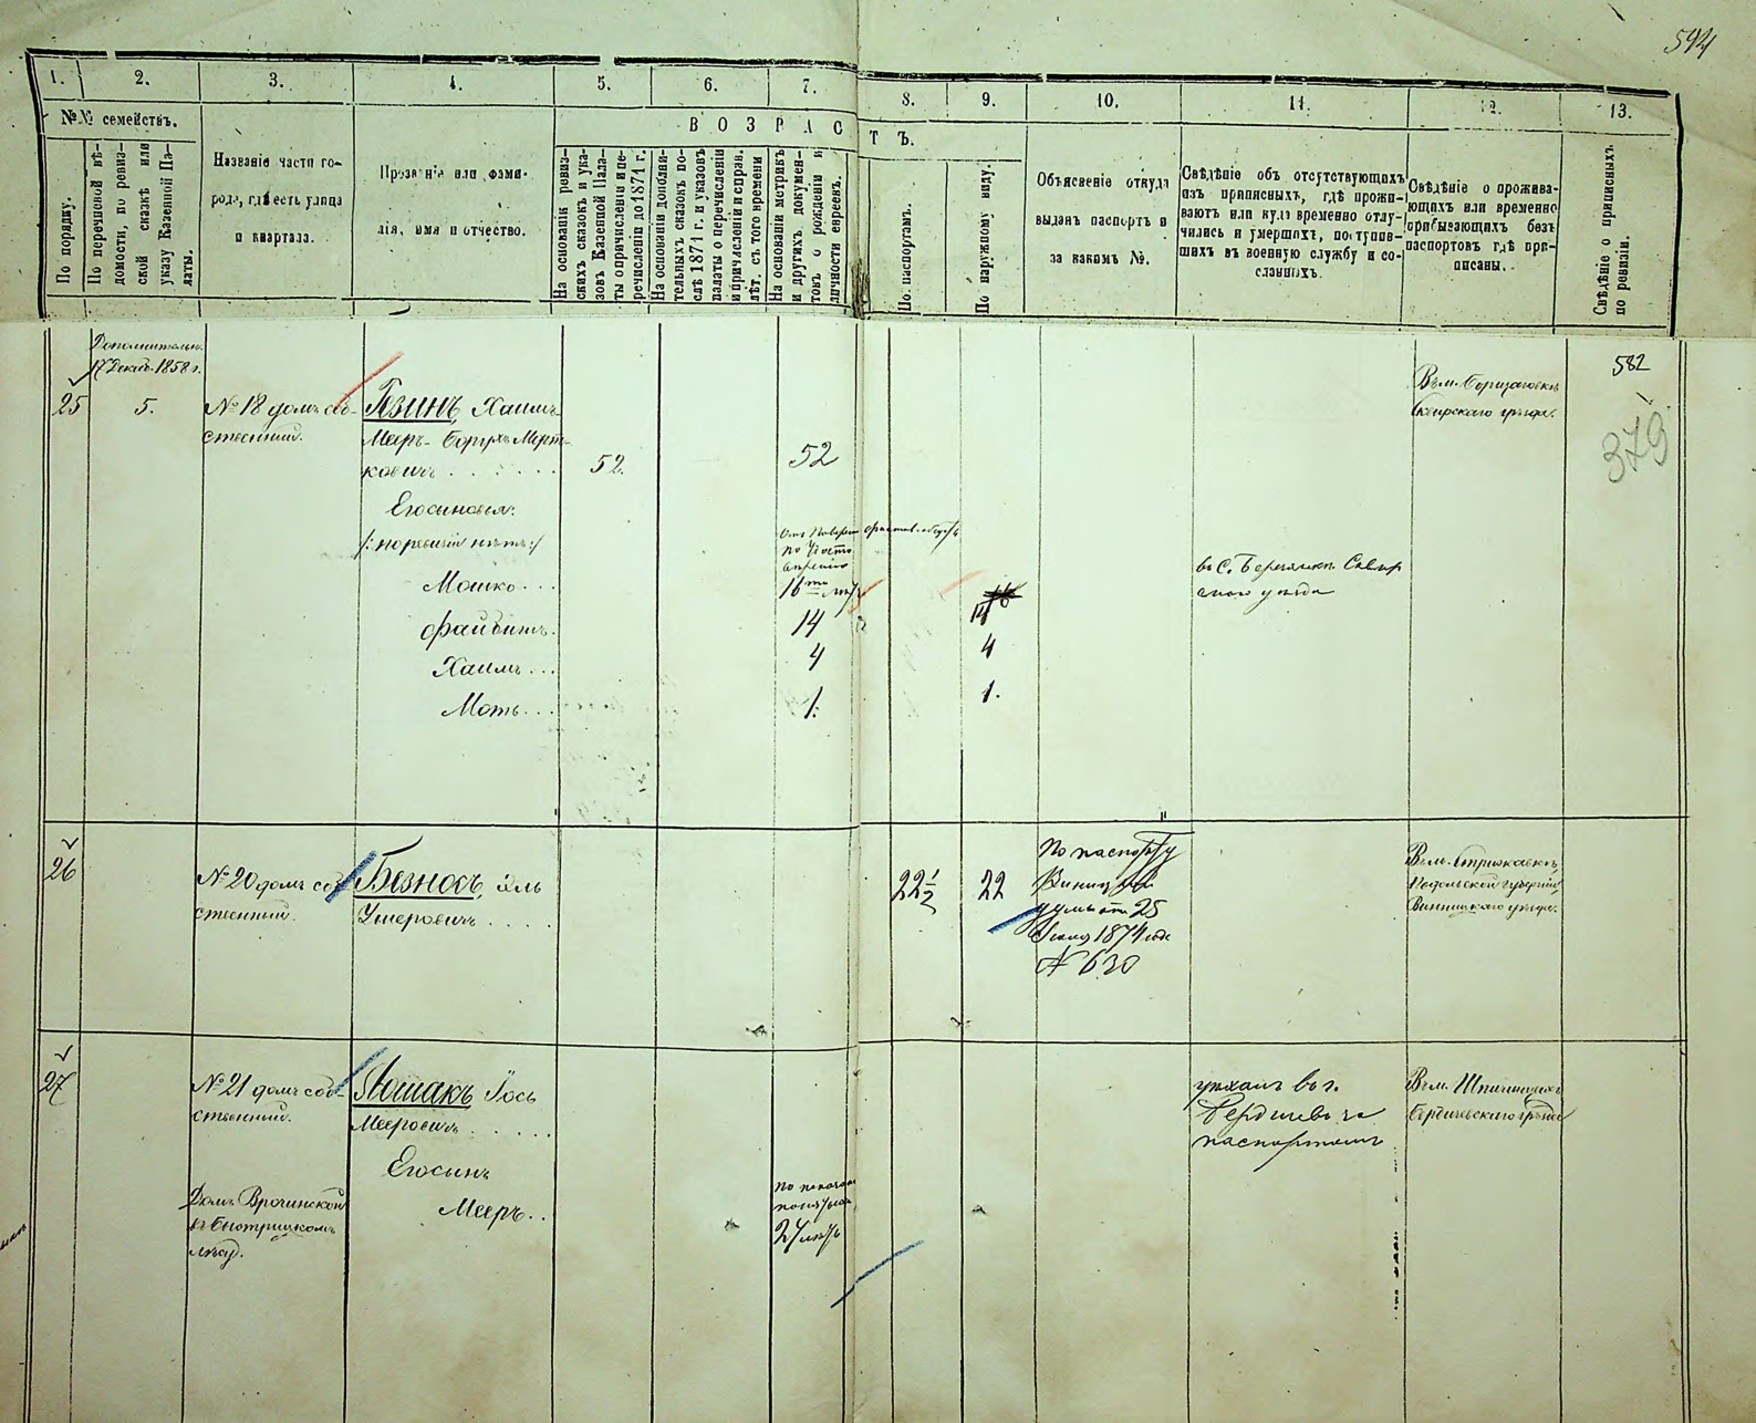 594
1. 2. 3. 4. 5. 6. 7. 8. 9. 10. 11. 12. 13.
№№ семействъ.
По порядку.
По перечневой вѣ-
домости, по ревиз-
ской сказкѣ или
указу Казенной Па-
латы.
Названіе части го-
рода, гдѣ есть улица
и квартала.
Прозваніе или фами-
лія, имя и отчество.
ВОЗРАСТЪ.
На основаніи ревиз-
скихъ сказокъ и ука-
зовъ Казенной Пала-
ты о причисленіи и пе-
речисленіи до 1871 г.
На основаніи дополни-
тельныхъ сказокъ по-
слѣ 1871 г. и указовъ
палаты о перечисленіи
и причисленіи и справ.
лѣт. съ того времени
На основаніи метрикъ
и другихъ докумен-
товъ о рожденіи и
личности евреевъ.
По паспортамъ.
По наружному виду.
Объясненіе откуда
выданъ паспортъ и
за какимъ №.
Свѣдѣніе объ отсутствующихъ
изъ приписныхъ, гдѣ прожи-
ваютъ или куда временно отлу-
чились и умершихъ, поступив-
шихъ въ военную службу и со-
сланныхъ.
Свѣдѣніе о прожива-
ющихъ или временно
прибывающихъ безъ
паспортовъ гдѣ при-
писаны.
Свѣдѣніе о приписныхъ
по ревизіи.
Дополнительн.
17 Декаб. 1858 г.
582
379
25 5. № 18 домъ соб-
ственный.
Гезинъ, Хаимъ-
Мееръ-Борухъ Мерт-
ковичъ . . . 52. 52
Его сыновья:
/: по ревизіи нѣтъ :/
Мошко . . . 16
Файвишъ. 14 14
Хаимъ . . . 4 4
Моть . . . 1. 1.
въ С.
уѣзда
Въ м.
уѣзда.
26 № 20 домъ соб-
ственный.
Безносъ,
Умеровичъ . . . .
22 1/2 22
По паспорту
думы отъ 25
1874 года
№ 630
Въ м. Стрижавкѣ,
Подольской губерніи,
Винницкаго уѣзда.
27 № 21 домъ соб-
ственный.
Лошакъ Іось
Мееровичъ . . . .
Его сынъ
Мееръ . .
Домъ
уѣхалъ въ г.
Бердичевъ за
паспортомъ
Въ м.
Бердичевскаго уѣзда